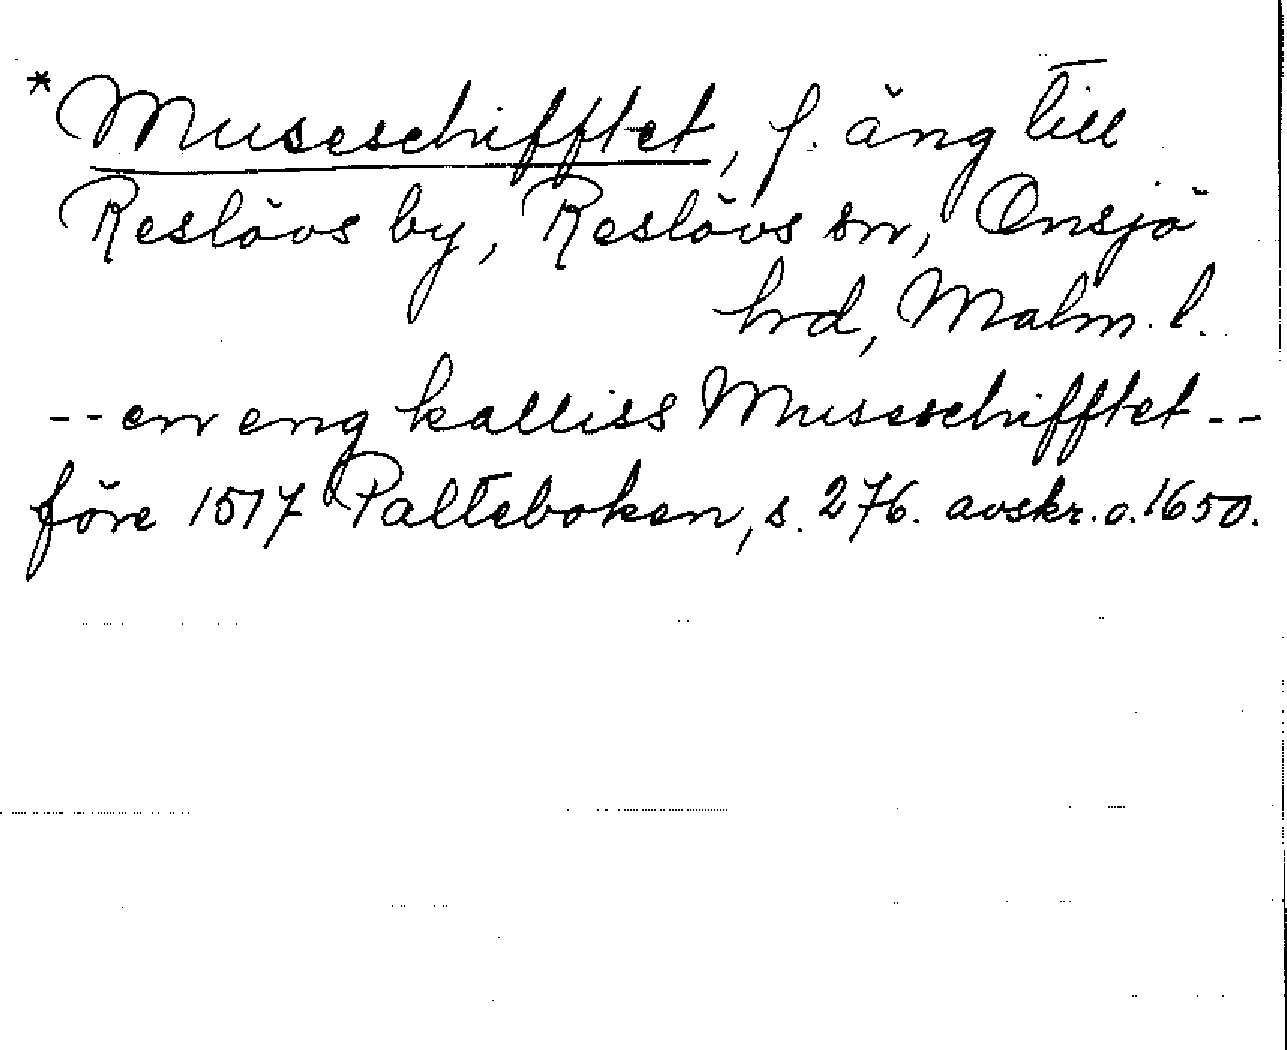 *Museschifftet, f. äng till
Reslövs by, Reslövs sn, Onsjö
hrd, Malm. l.
-- en eng kalliss Museschifftet --
före 1517 Palteboken, s. 276. avskr. o. 1650.